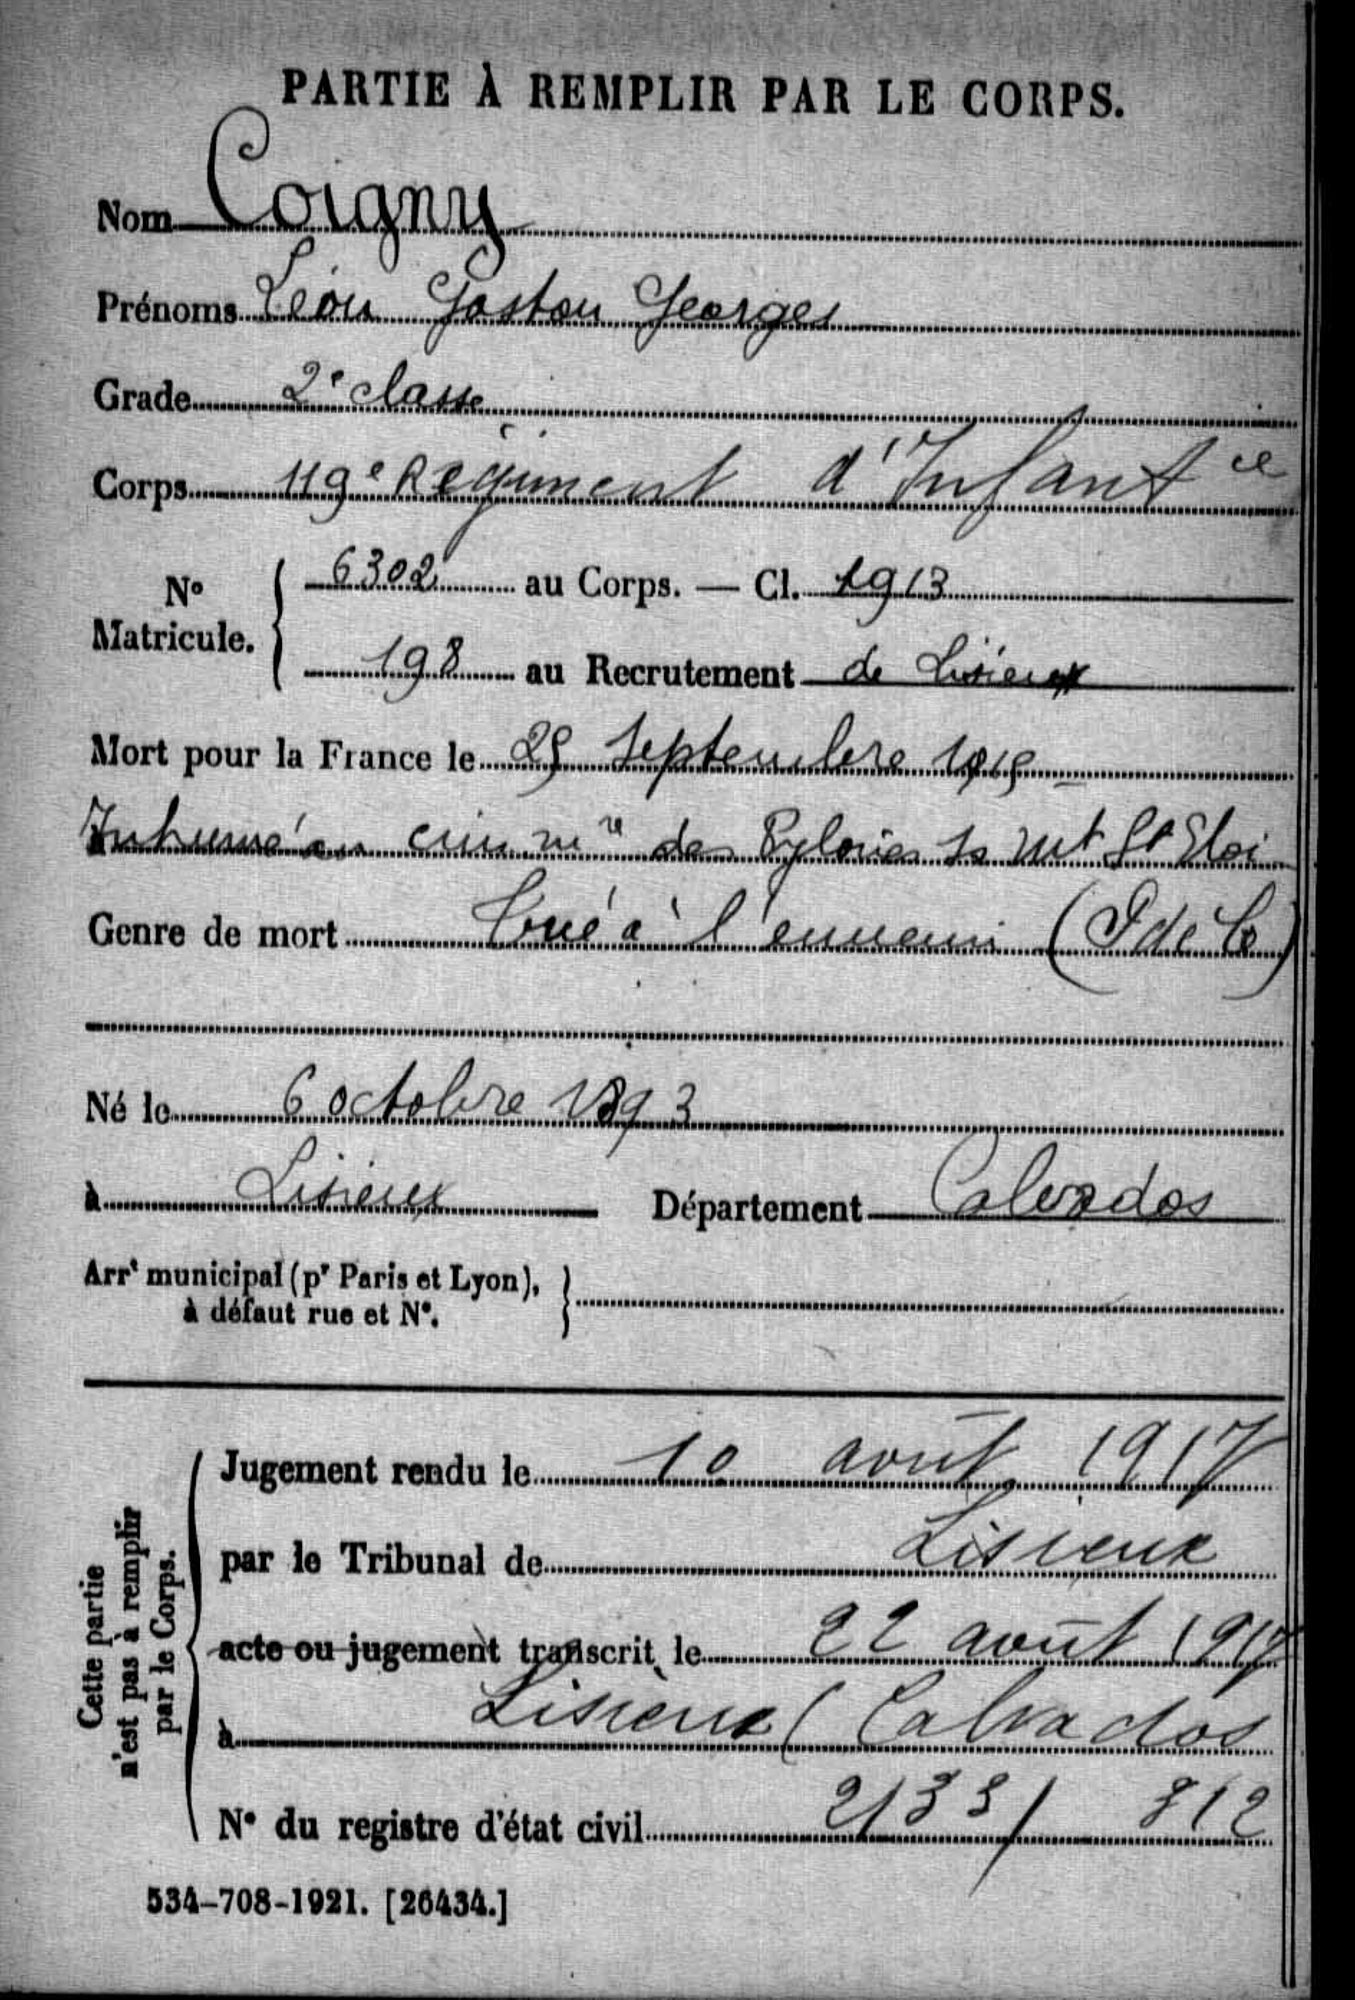 PARTIE À REMPLIR PAR LE CORPS.
Nom Coigny
Prénoms Léon Gaston Georges
Grade 2e classe
Corps 119e Régiment d'Infantie
No Matricule. 6302 au Corps. — Cl. 1913
198 au Recrutement de Lisieux
Mort pour la France le 25 Septembre 1915
Inhumé au cim re des Pylones Mt St Eloi
Genre de mort Tué à l'ennemi (P de C)
Né le 6 octobre 1893
à Lisieux Département Calvados
Arrt municipal (pr Paris et Lyon),
à défaut rue et No.
Cette partie
n'est pas à remplir
par le Corps.
Jugement rendu le 10 août 1917
par le Tribunal de Lisieux
acte ou jugement transcrit le 22 août 1917
à Lisieux (Calvados
No du registre d'état civil 2133/ 812
534-708-1921. [26434.]